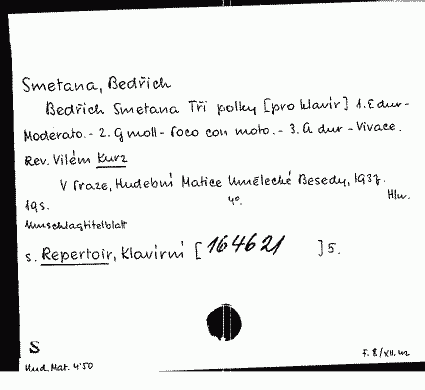 Smetana, Bedřich
Bedřich Smetana Tři polky [pro klavír] 1. E dur -
Moderato. - 2. G moll - Poco con moto. - 3. A dur - Vivace.
Rev. Vilém Kurz
V Praze, Hudební Matice Umělecké Besedy, 1937.
19 s. 4o. Hlw.
Umschlagtitelblatt
s. Repertoir, Klavírní [164621] 5.
S
Hud. Mat. 4'50